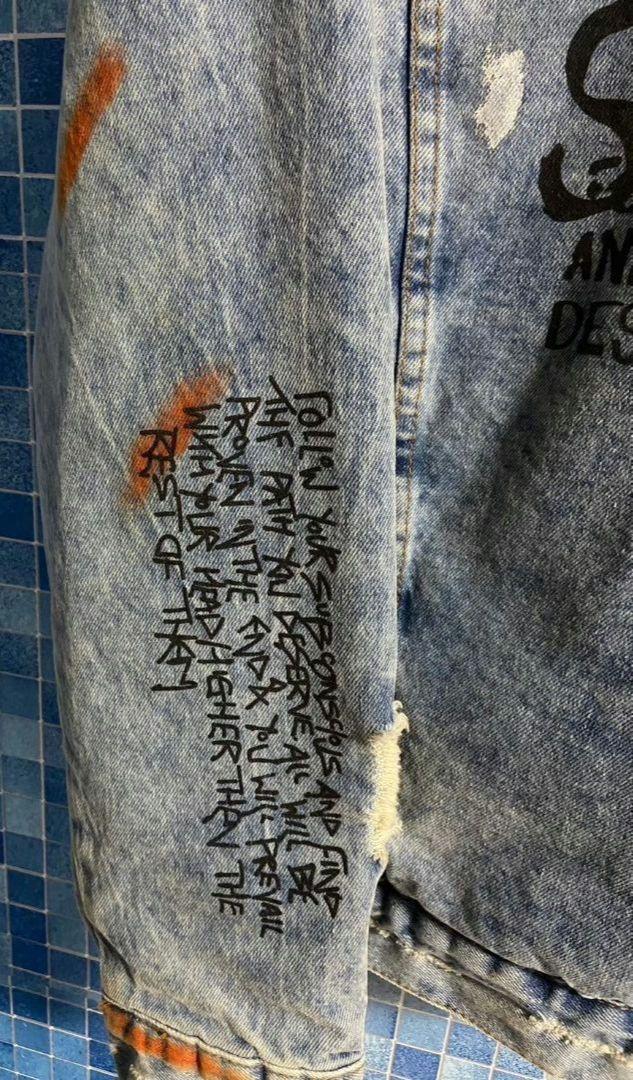 FOLLOW YOUR SUBCONSCIOUS AND FIND
THE PATH YOU DESERVE ALL WILL BE
PROVEN IN THE END & YOU WILL PREVAIL
WITH YOUR HEAD HIGHER THEN THE
REST OF THEM
S
AN
DES